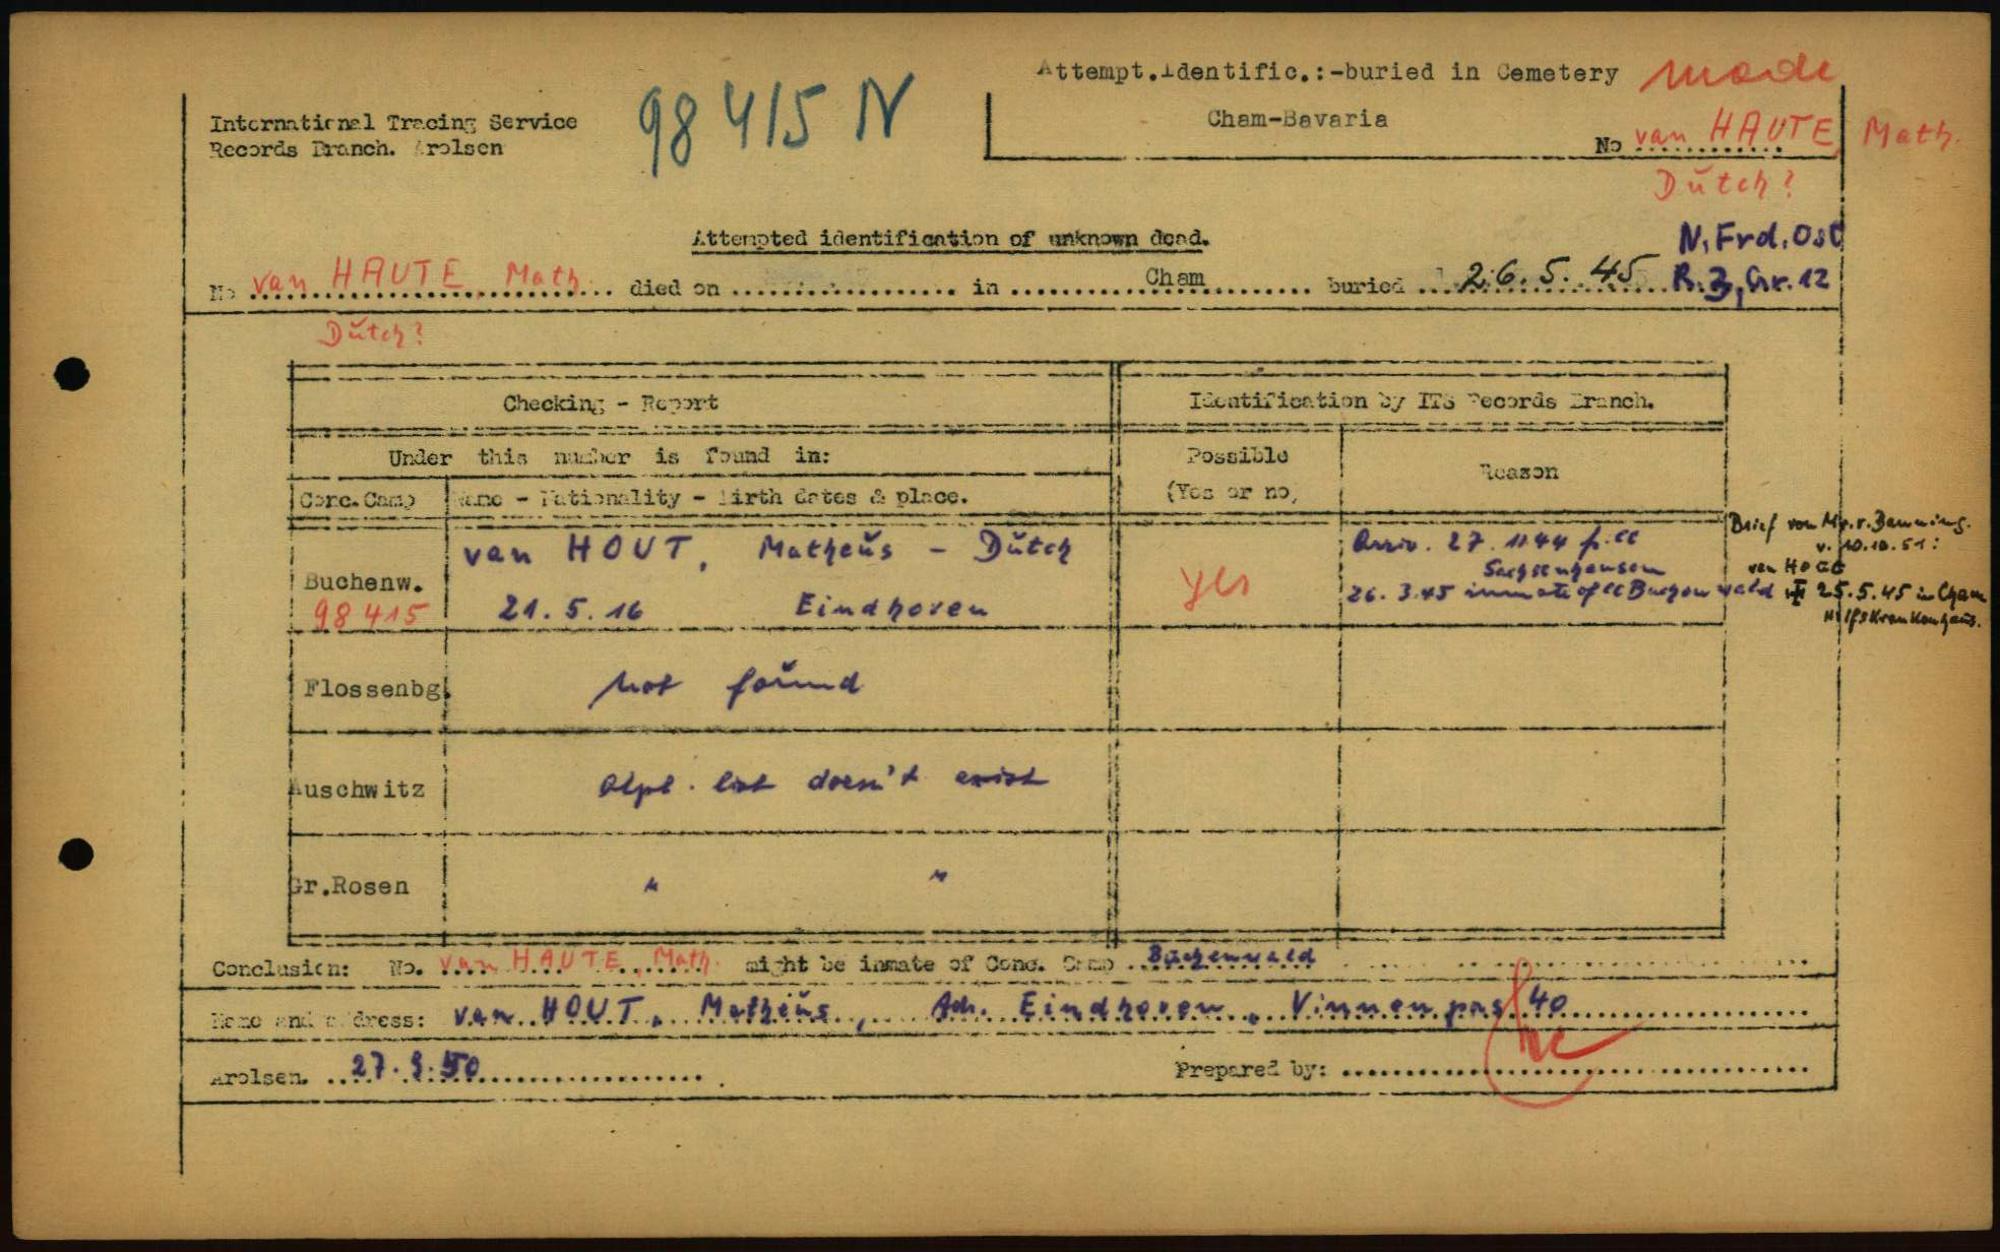 Attempt.Identific.:-buried in Cemetery made
International Tracing Service 98415 N Cham-Bavaria
Records Branch. Arolsen No van HAUTE, Math.
Dutch?
Attempted identification of unknown dead.
N.Frd.Ost
No van HAUTE, Math. died on in Cham buried 26.5.45 R.3, Gr.12
Dutch?
Checking - Report Identification by ITS Records Branch.
Under this number is found in: Possible Reason
Conc.Camp Name - Nationality - Birth dates & place. (Yes or no,
van HOUT, Matheus - Dutch Arriv. 27.1144 f. CC Brief von Mr.v.Banning.
v. 10.10.51:
Buchenw. yes Sachsenhausen van HOUT
98415 21.5.16 Eindhoven 26.3.45 inmate of CC Buchenwald 25.5.45 in Cham
Hilfskrankenhaus.
Flossenbg. not found
Auschwitz Alph. list doesn't exist
Gr.Rosen " "
Conclusion: No. van HAUTE, Math. might be inmate of Conc. Camp Buchenwald
Name and address: van HOUT, Matheus, Adr. Eindhoven, Vinnenpas 40
Arolsen. 27.9.50 Prepared by: